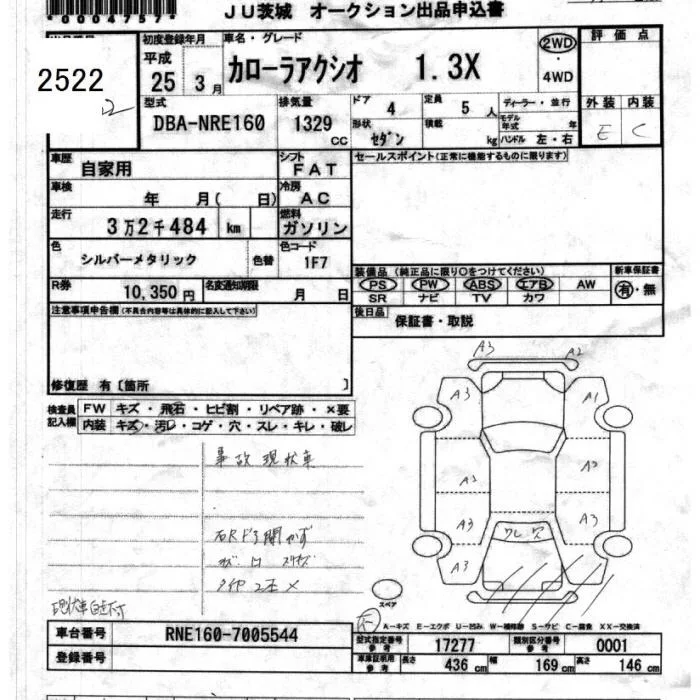 *0004757*
JU茨城 オークション出品申込書
2522
初度登録年月 車名・グレード 評価点
平成 25年 3月 カローラアクシオ 1.3X 2WD・4WD
型式 排気量 ドア 4 定員 5人 ディーラー・並行 外装 内装
DBA-NRE160 1329 cc 形状 セダン 積載 kg モデル年式 年 ハンドル 左・右 E C
車歴 自家用 シフト FAT セールスポイント(正常に機能するものに限ります)
車検 年 月( 日) 冷房 AC
走行 3万2千484 km 燃料 ガソリン
色 シルバーメタリック 色替 色コード 1F7
装備品 (純正品に限り○をつけてください) 新車保証書
PS PW ABS エアB AW 有・無
SR ナビ TV カワ
R券 10,350円 名変通知期限 月 日
後日品 保証書・取説
注意事項申告欄(不具合内容等は具体的に記入して下さい)
修復歴 有〔箇所 〕
検査員記入欄 FW キズ・飛石・ヒビ割・リペア跡・×要
内装 キズ・汚レ・コゲ・穴・スレ・キレ・破レ
事故現状車
A3 A2
A3 A1
A2 A2
A3 A3
ワレ 穴
A3
スペア
A-キズ E-エクボ U-凹み W-補修跡 S-サビ C-腐食 XX-交換済
車台番号 RNE160-7005544
登録番号
型式指定番号 参考 17277 類別区分番号 参考 0001
車庫証明用 参考 長さ 436 cm 幅 169 cm 高さ 146 cm